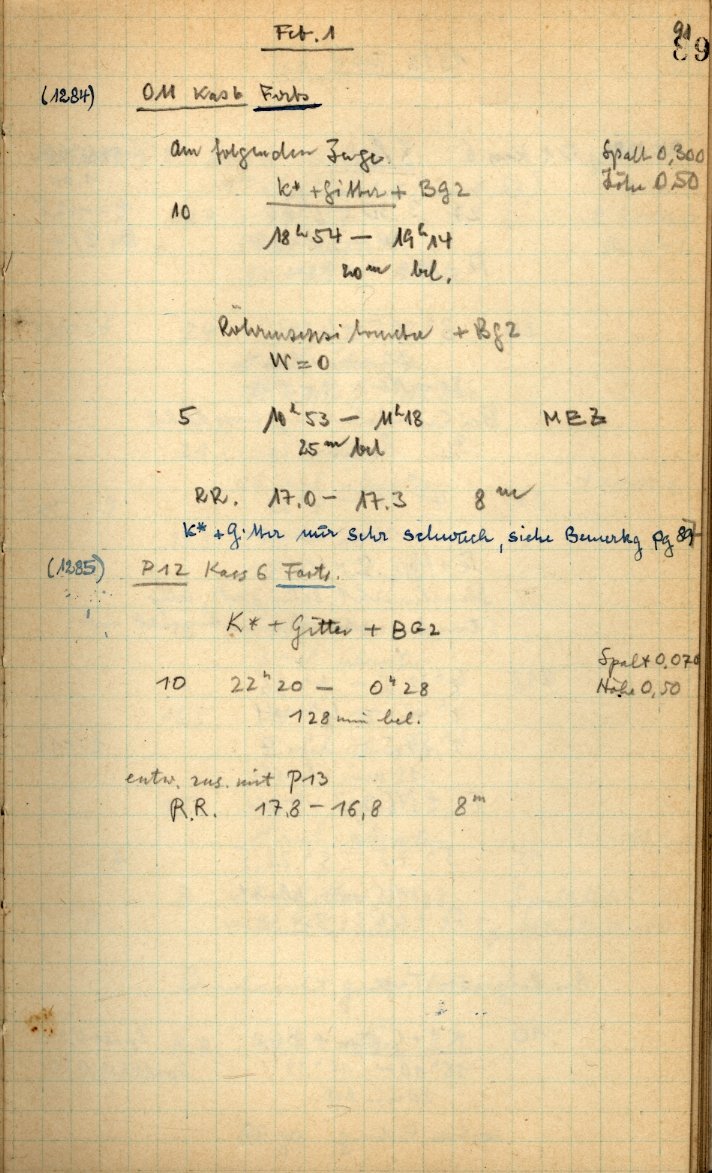 Feb. 1
91
89
(1284) O11 Kass 6 Forts
Am folgenden Tage.
Spalt 0,300
Höhe 0,50
K* + Gitter + Bg2
10
18ʰ54 — 19ʰ14
20ᵐ bel.
+ Bg2
W = 0
5 10ʰ53 — 11ʰ18 MEZ
25ᵐ bel
RR. 17.0 — 17.3 8ᵐ
K* + Gitter nur sehr schwach, siehe Bemerkg pg 87
(1285) P12 Kass 6 Forts.
K* + Gitter + BG2
Spalt 0.070
Höhe 0,50
10 22ʰ20 — 0ʰ28
128 min bel.
entw. zus. mit P13
R.R. 17.8 — 16,8 8ᵐ